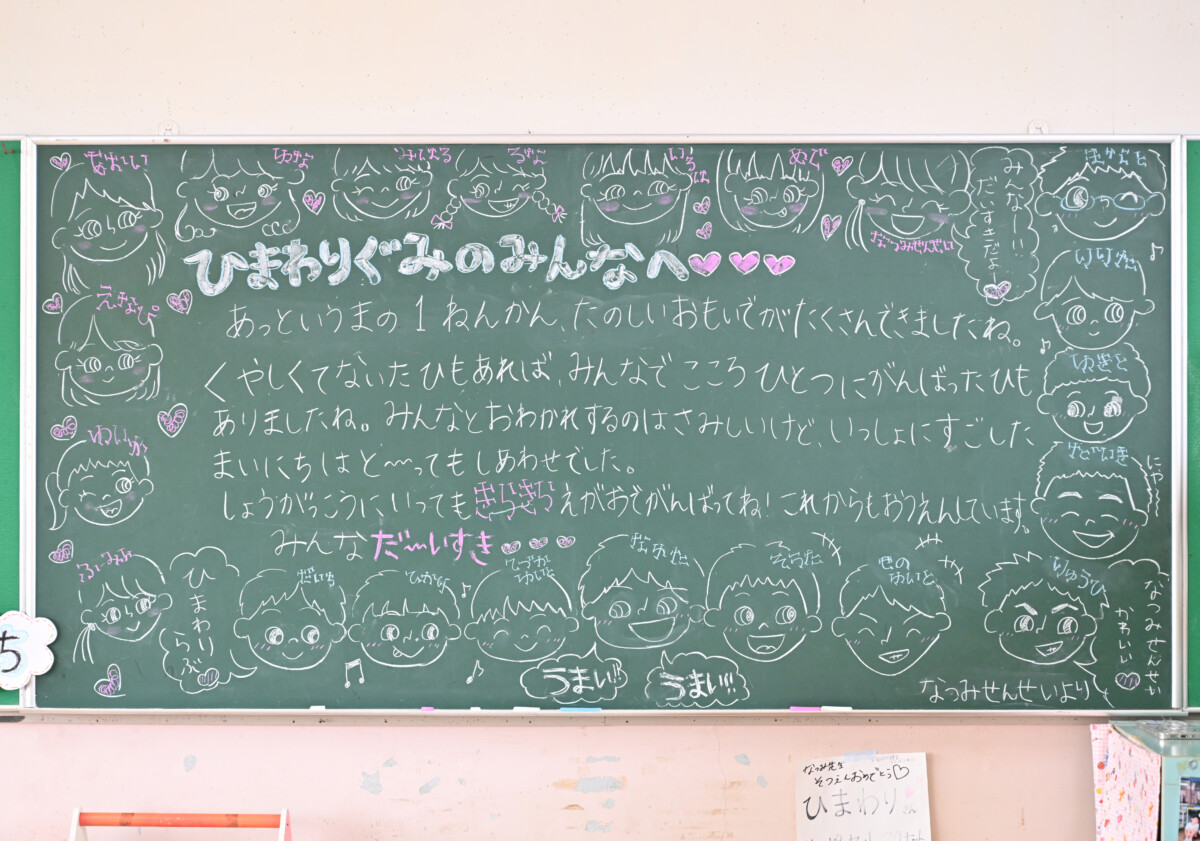 ゆな
みはる
るな
いろは
めぐ
なつみせんせい
みんなーー!!
だいすきだよー
はると
ひまわりぐみのみんなへ
えまぴ
あっというまの1ねんかん、たのしいおもいでがたくさんできましたね。
くやしくてないたひもあれば、みんなでこころひとつにがんばったひも
ありましたね。みんなとおわかれするのはさみしいけど、いっしょにすごした
まいにちはと〜ってもしあわせでした。
しょうがっこうにいってもきらきらえがおでがんばってね!これからもおうえんしています。
みんなだ〜いすき
ゆきと
れいか
にやり
ひまわり
らぶ
だいち
ひかり
そうた
りゅうび
うまい!!
うまい!!
なつみせんせい
かわいい
なつみせんせいより
5
なつみ先生
そつえんおめでとう♡
ひまわり